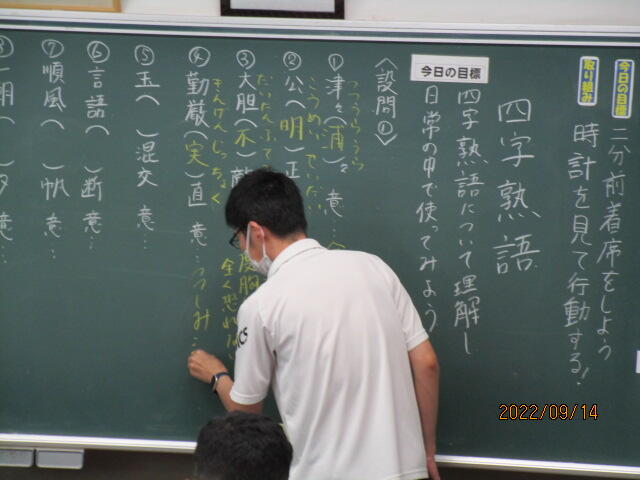 今日の目標
二分前着席をしよう
取り組み
時計を見て行動する!
四字熟語
今日の目標
四字熟語について理解し
日常の中で使ってみよう
〈設問①〉
つつうらうら
①津々(浦)々 意…
こうめいせいだい
②公(明)正
だいたんふて
③大胆(不)敵
度胸
全く恐れない
④勤厳(実)直 意…つつしみ
きんげんじっちょく
⑤玉( )混交 意…
⑥言語( )断 意…
⑦順風( )帆 意…
⑧一朝( )夕 意…
CS
2022/09/14